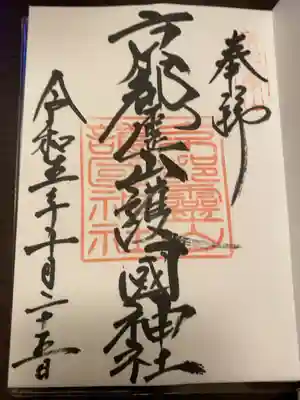 奉拝
京都霊山護國神社
令和五年十月二十五日
京都靈山護國神社